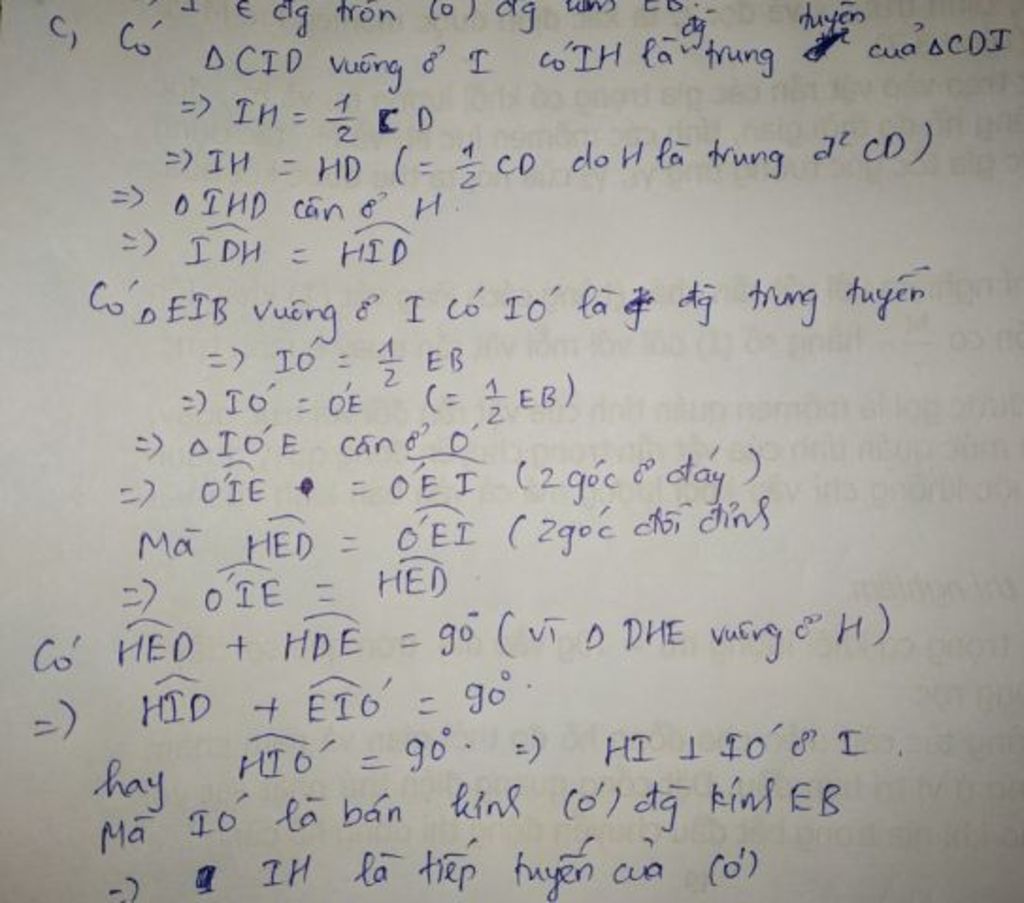 I ∈ đg tròn (O') đg kính EB.
c, Có
ΔCID vuông ở I có IH là đg trung tuyến của ΔCDI
=> IH = 1/2 CD
=> IH = HD (= 1/2 CD do H là trung đ² CD)
=> ΔIHD cân ở H.
=> IDH = HID
Có ΔEIB vuông ở I có IO' là đg trung tuyến
=> IO' = 1/2 EB
=> IO' = O'E (= 1/2 EB)
=> ΔIO'E cân ở O'
=> O'IE = O'EI (2 góc ở đáy)
Mà HED = O'EI (2 góc đối đỉnh
=> O'IE = HED
Có HED + HDE = 90° (vì Δ DHE vuông ở H)
=> HID + EIO' = 90°.
hay HIO' = 90° . => HI ⊥ IO' ở I.
Mà IO' là bán kính (O') đg kính EB
=> IH là tiếp tuyến của (O')